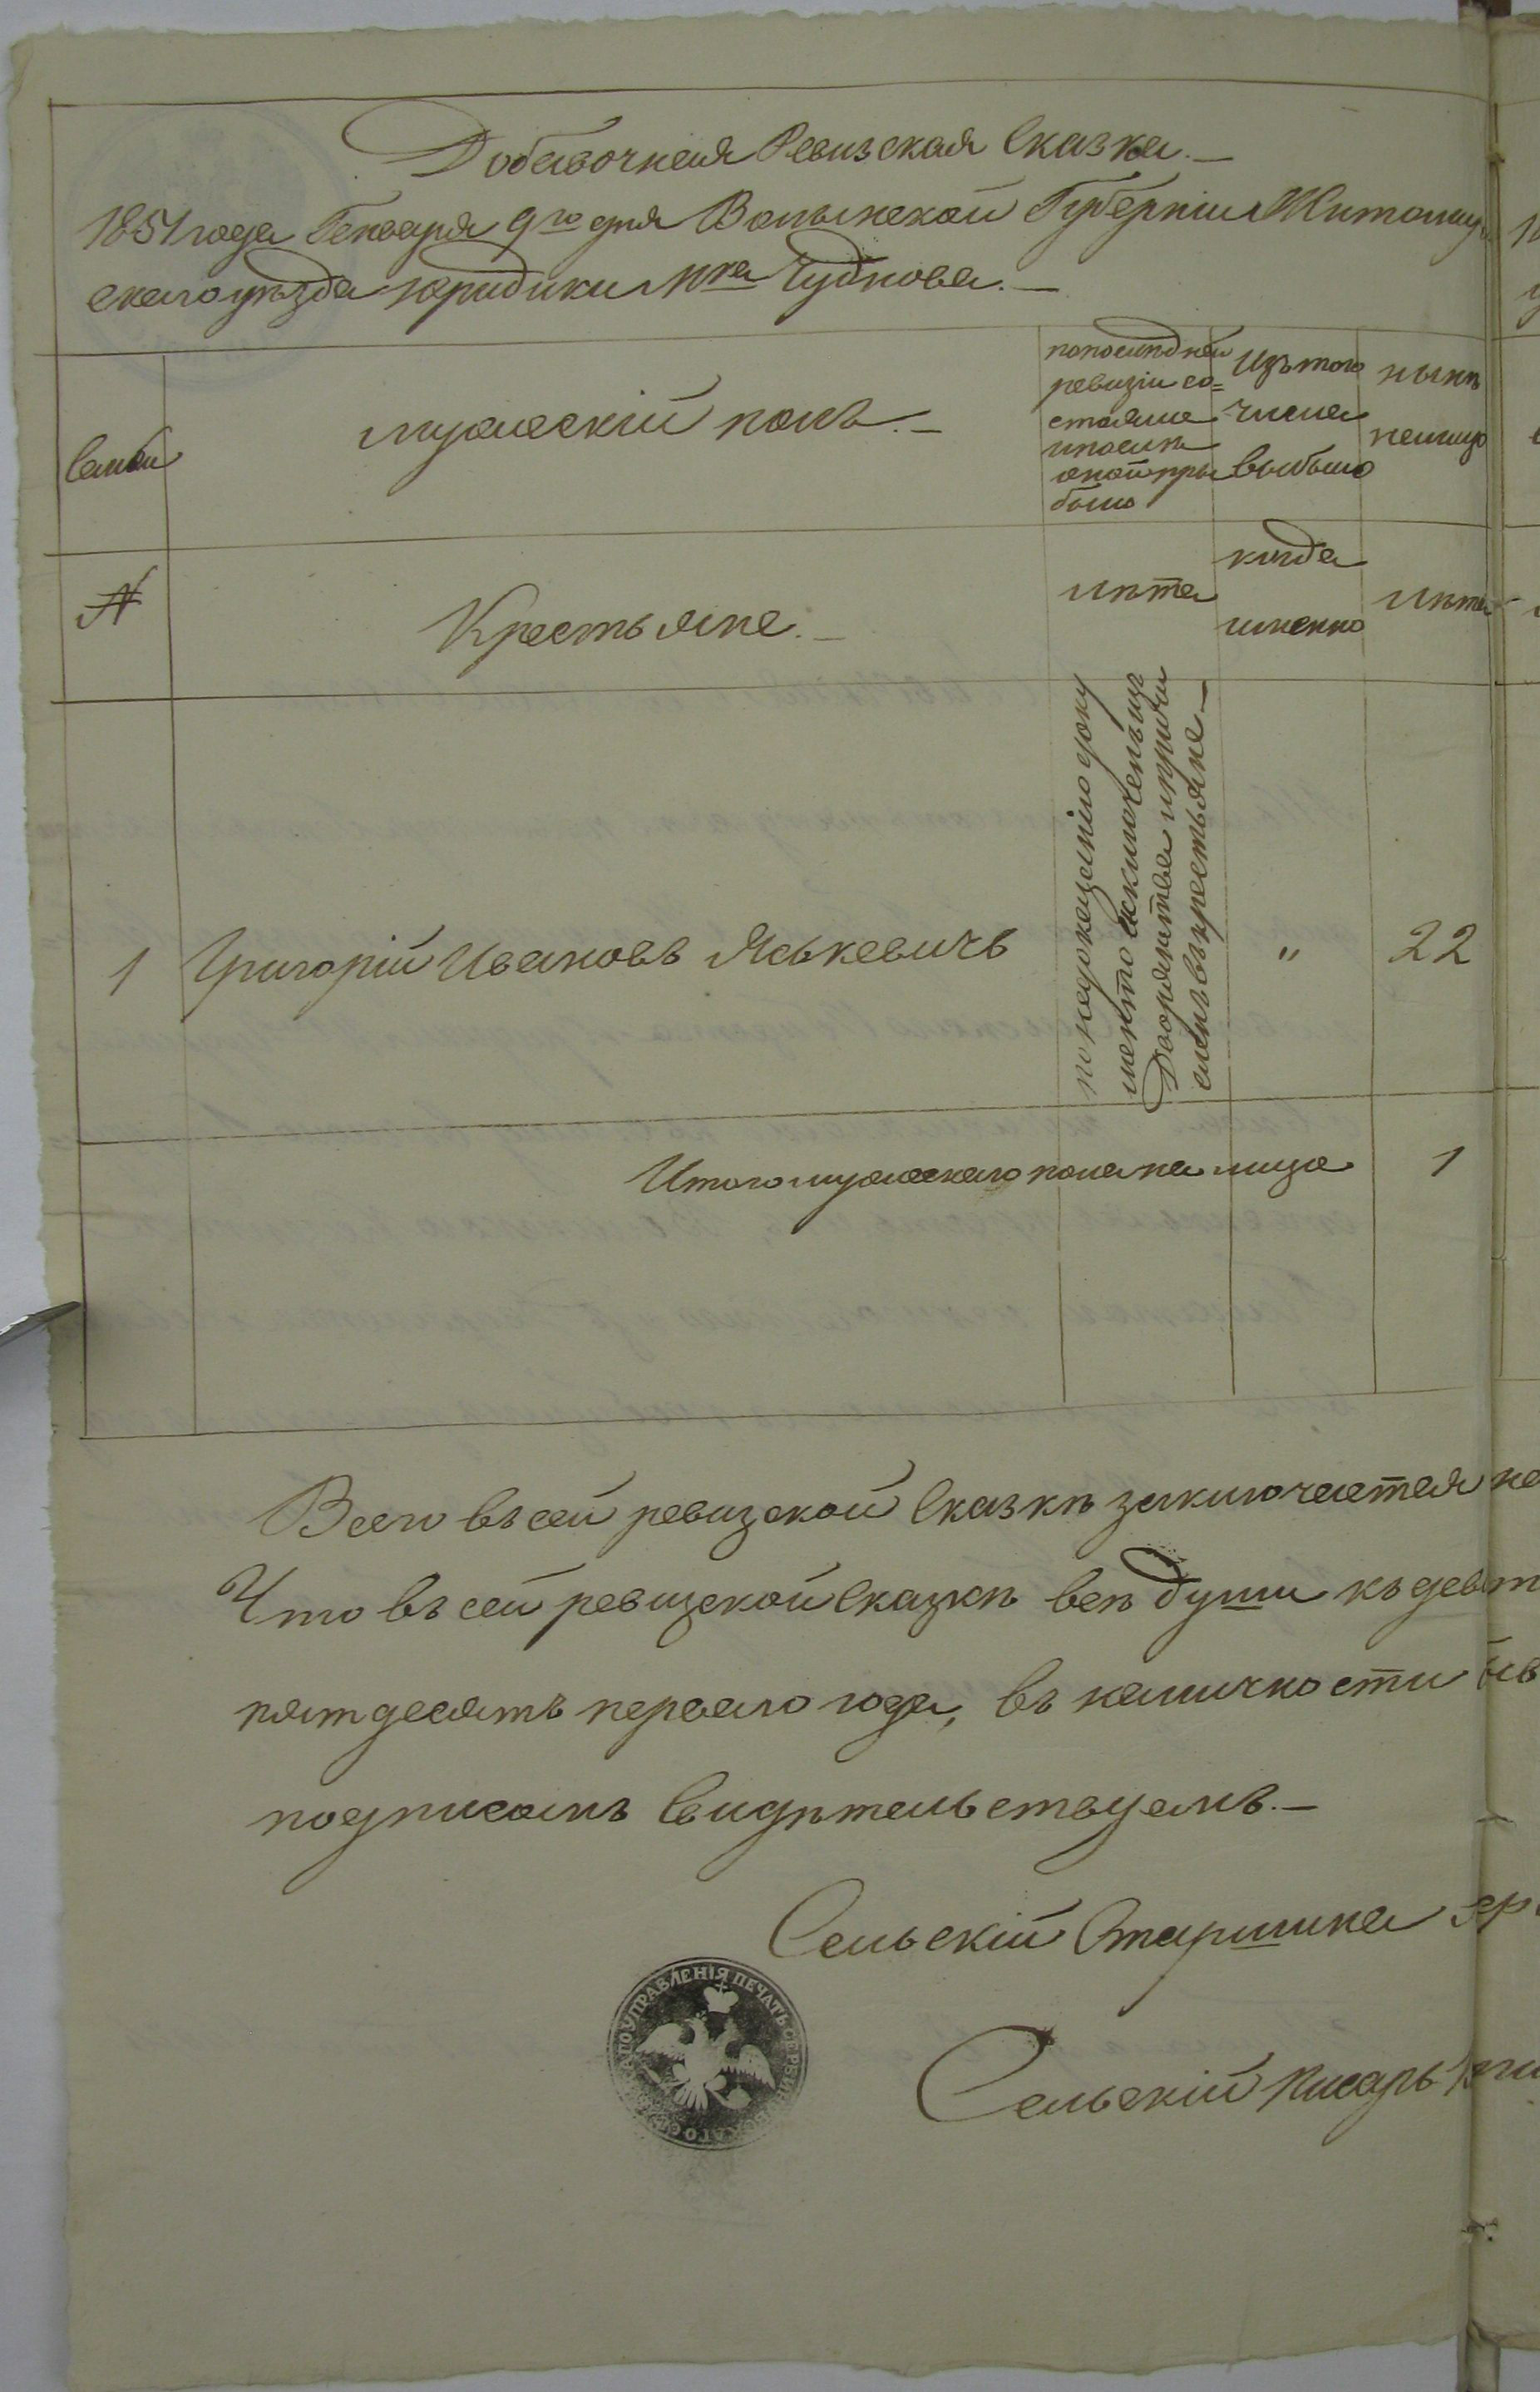 Добавочная Ревизская Сказка.—
1851 года Генваря 9го дня Волынской Губерніи Житомир
скаго уѣзда юридики Мка Чуднова.—
Семьи
мужескій полъ.—
по послѣдней
ревизіи со=
стояло
и послѣ
оной при
было
Изъ того
числа
выбыло
нынѣ
на лицо
№
Крестьяне.—
лѣта
когда
именно
лѣта
1
Григорій Ивановъ Яськевичъ
по недоказанію доку
менто исключенъ изъ
Дворянства и причи
сленъ въ крестьяне—
"
22
Итого мужескаго пола на лицо
1
Всего въ сей ревизской Сказкѣ заключается на
Что въ сей ревизской Сказкѣ всѣ души къ девят
пятдесятъ перваго года, въ наличности
подписомъ Свидѣтельствуемъ.—
Сельскій Старшина
Сельскій писарь
УПРАВЛЕНІЯ ПЕЧАТЬ